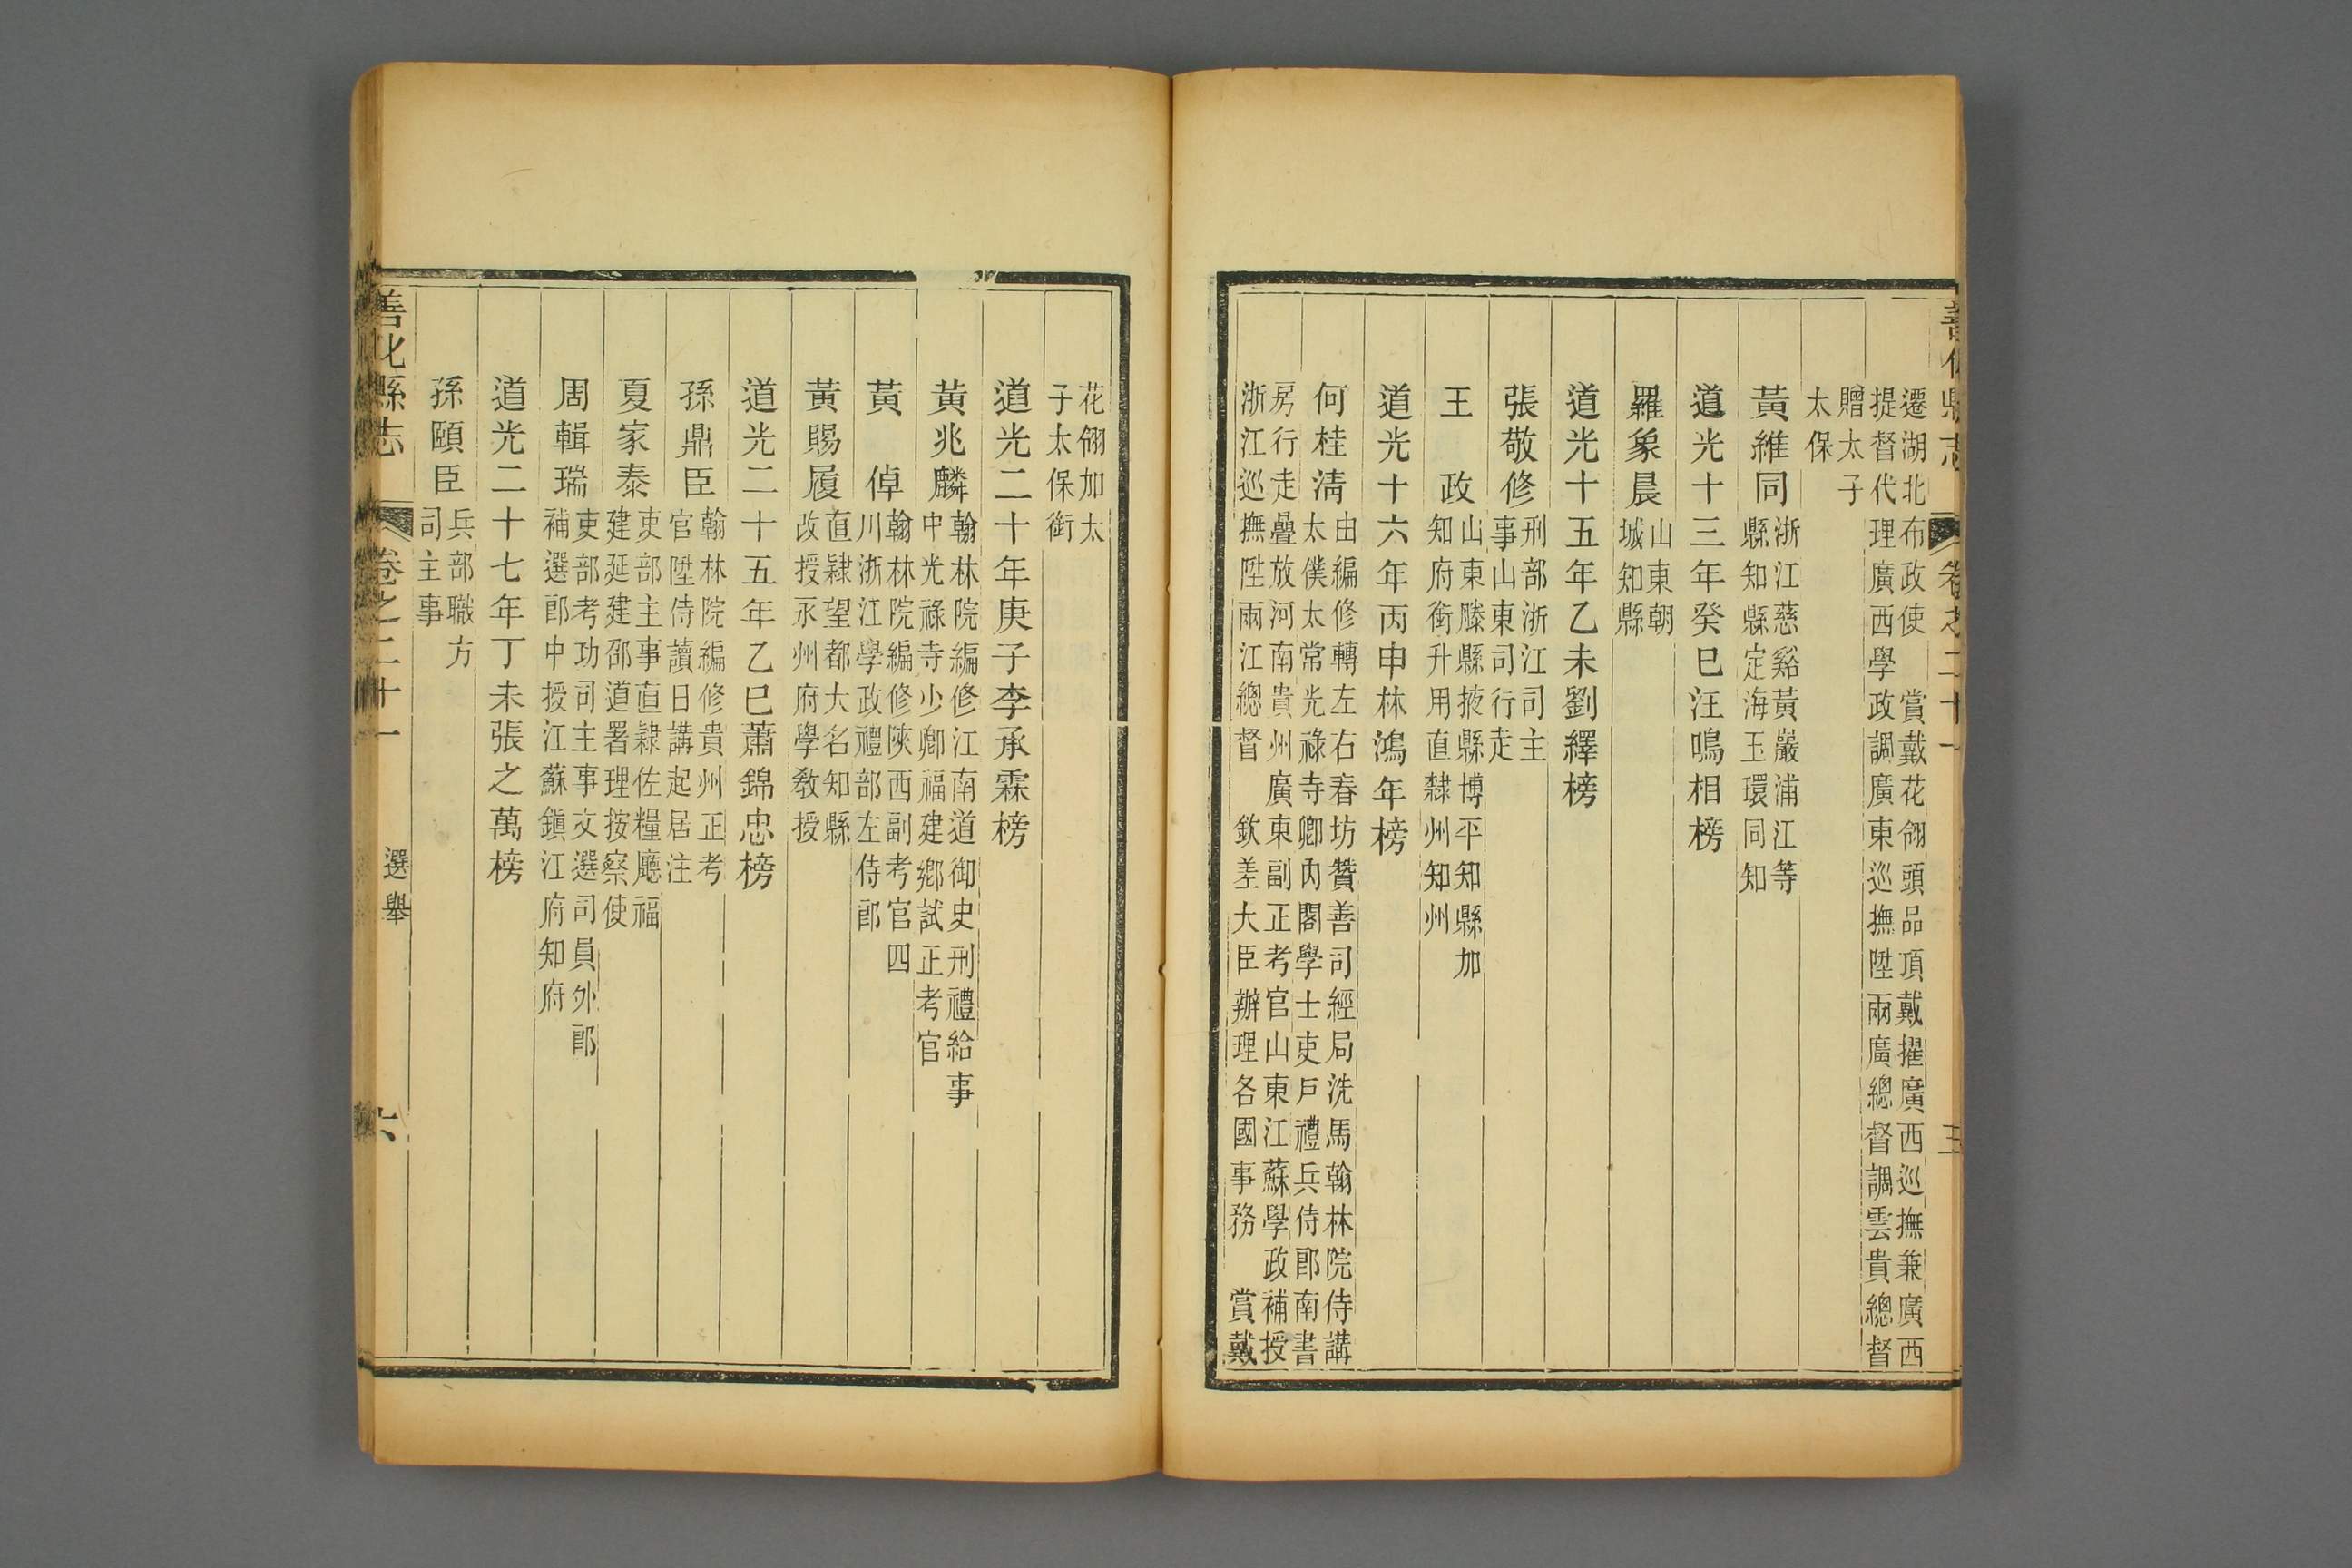 善化縣志
卷之二十一
遷湖北布政使　賞戴花翎頭品頂戴擢廣西巡撫兼廣西
提督代理廣西學政調廣東巡撫陞兩廣總督調雲貴總督
贈太子
太保
黃維同
浙江慈谿黃巖浦江等
縣知縣定海玉環同知
道光十三年癸巳汪鳴相榜
羅象晨
山東朝
城知縣
道光十五年乙未劉繹榜
張敬修
刑部浙江司主
事山東司行走
王　政
山東滕縣掖縣博平知縣加
知府銜升用直隸州知州
道光十六年丙申林鴻年榜
何桂清
由編修轉左右春坊贊善司經局洗馬翰林院侍講
太僕太常光祿寺卿內閣學士吏戶禮兵侍郎南書
房行走疊放河南貴州廣東副正考官山東江蘇學政補授
浙江巡撫陞兩江總督　欽差大臣辦理各國事務　賞戴
花翎加太
子太保銜
道光二十年庚子李承霖榜
黃兆麟
翰林院編修江南道御史刑禮給事
中光祿寺少卿福建鄉試正考官
黃　倬
翰林院編修陝西副考官四
川浙江學政禮部左侍郎
黃賜履
直隸望都大名知縣
改授永州府學教授
道光二十五年乙巳蕭錦忠榜
孫鼎臣
翰林院編修貴州正考
官陞侍讀日講起居注
夏家泰
吏部主事直隸佐糧廳福
建延建邵道署理按察使
周輯瑞
吏部考功司主事文選司員外郎
補選郎中授江蘇鎮江府知府
道光二十七年丁未張之萬榜
孫頤臣
兵部職方
司主事
善化縣志
卷之二十一
選舉
六